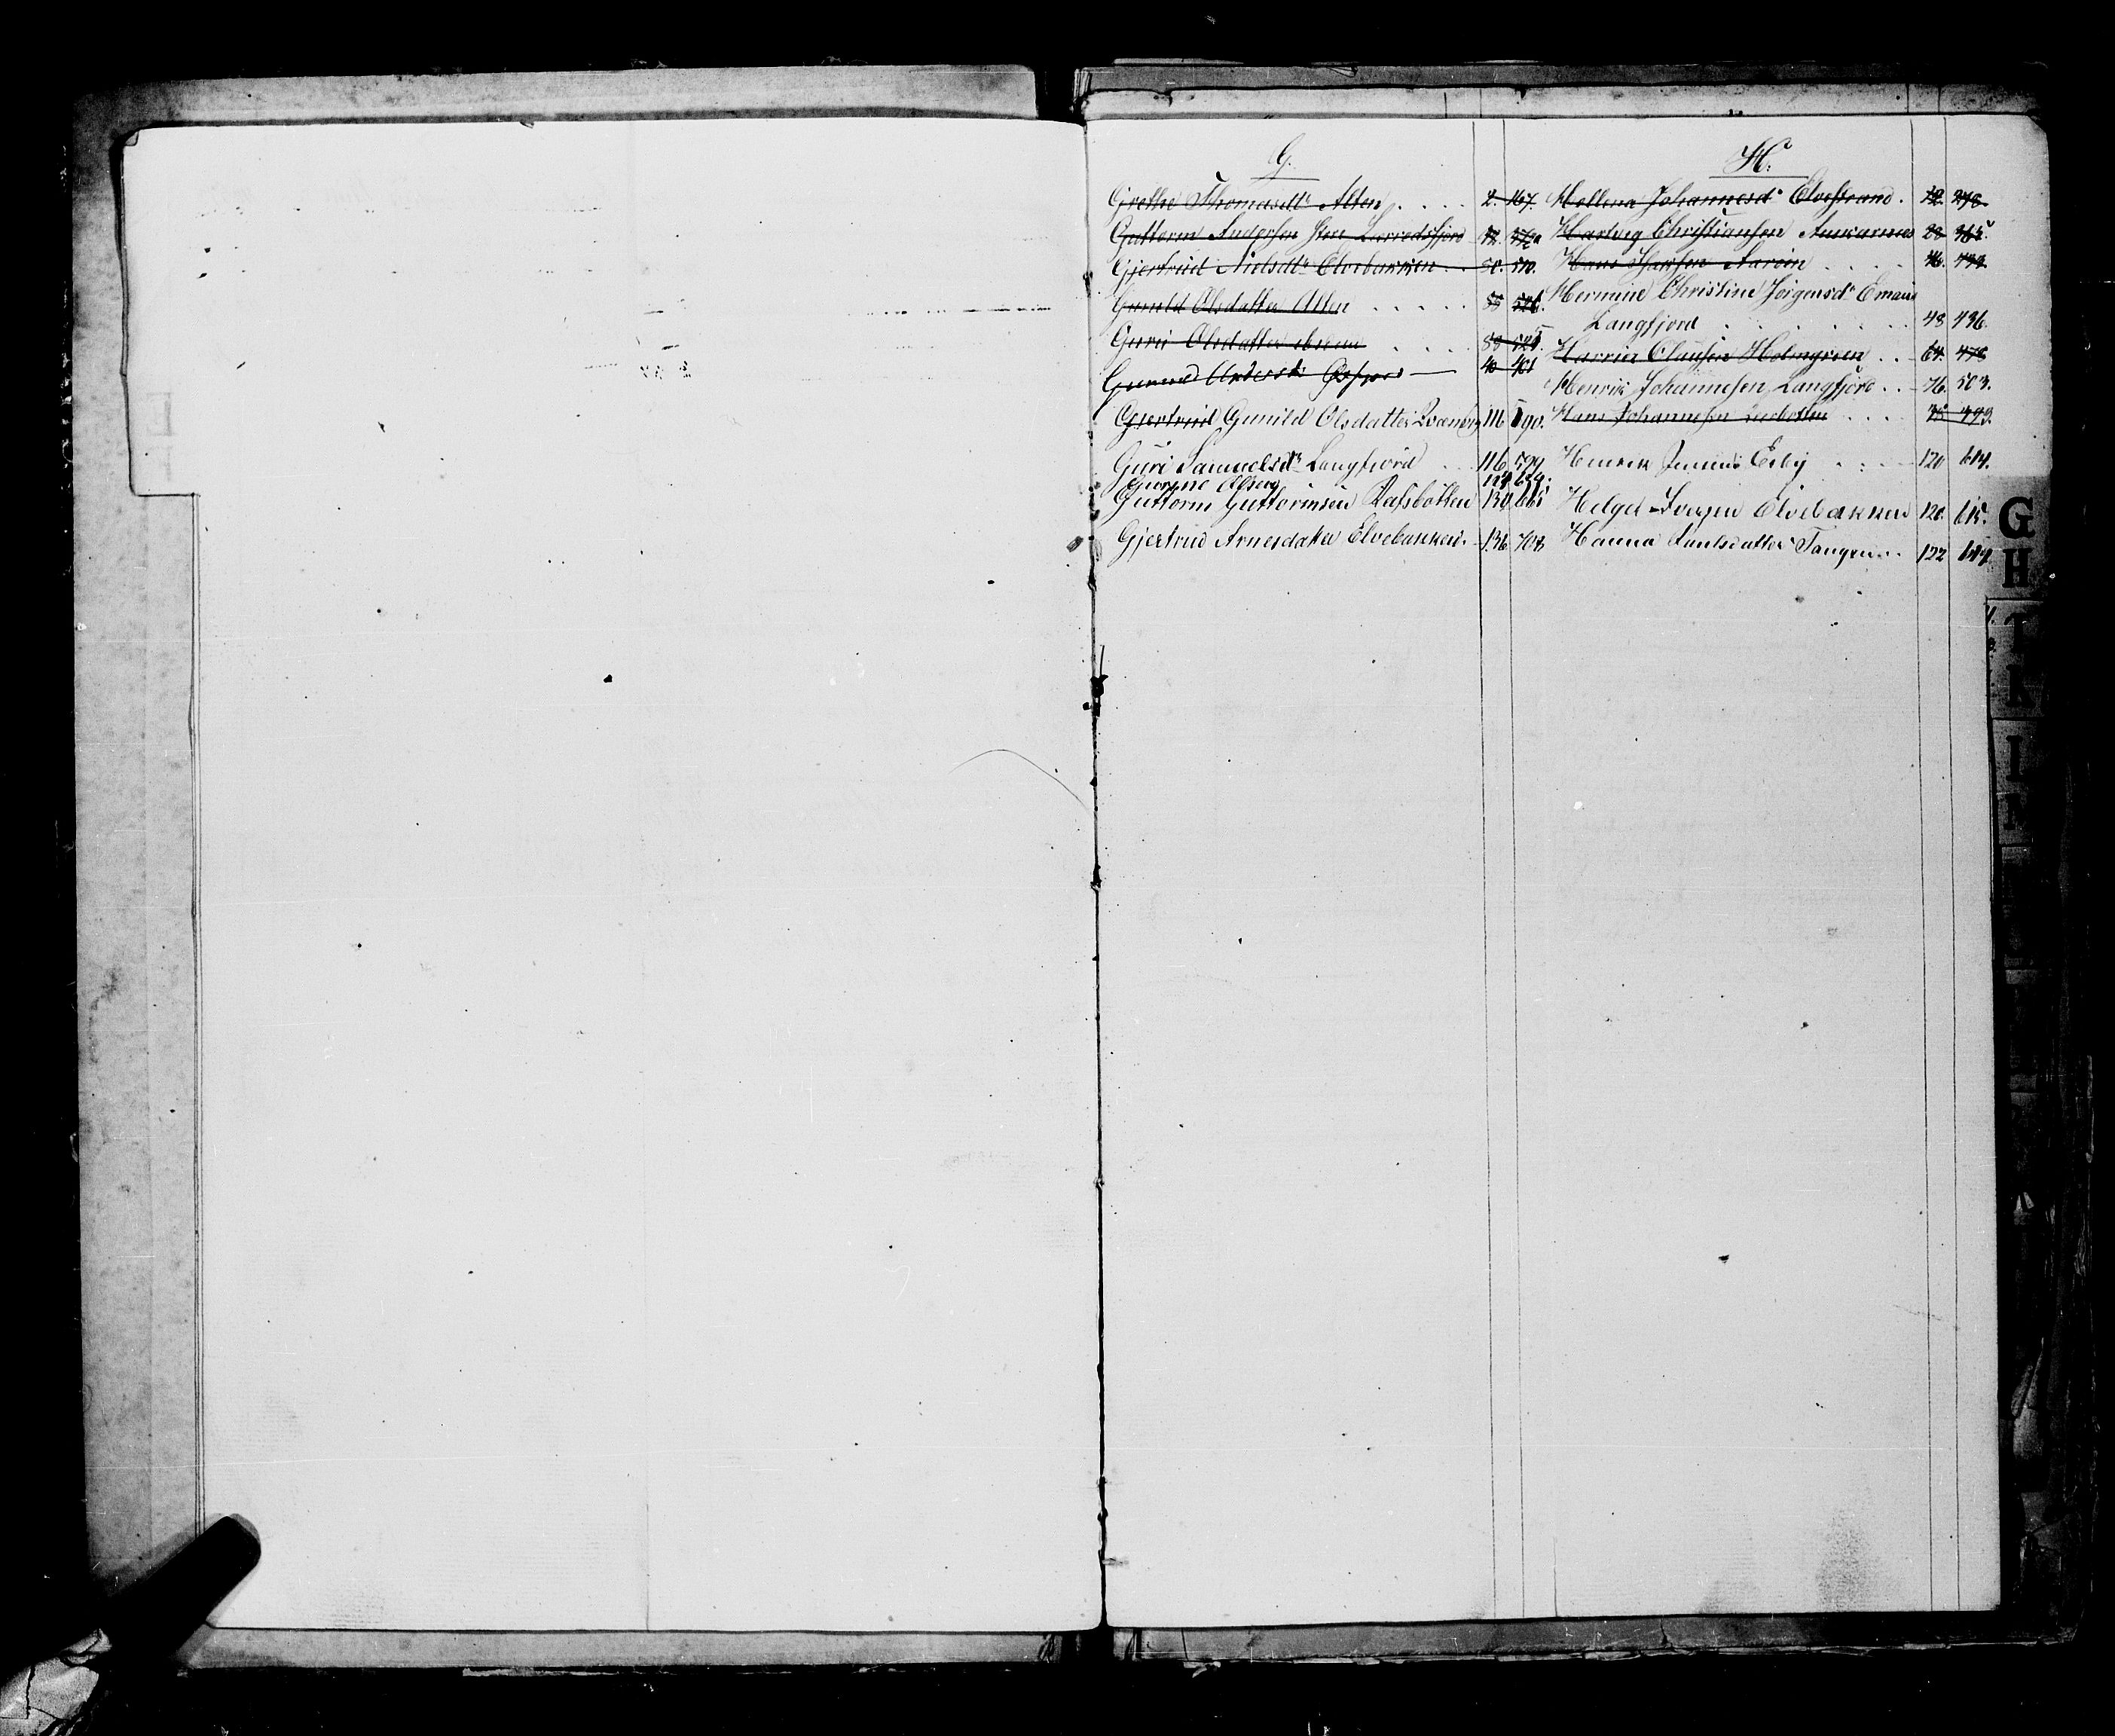 G.
Grethe Thomasdtr Alten . . . . 2. 167.
Guttorm Andersen Store Lerredsfjord 72.
Gjertrud Nielsdtr Elvebakken . . 80. 510.
Gunild Olsdatter Alten . . . . . 88 526.
Guri Olsdatter . . . . 88 525.
Gunild Andersdtr 40 401
Gjertrud Gunild Olsdatter Qvænvig 116 590.
Guri Samuelsdtr Langfjord . . 116 594
Gurine Olsen 124 654.
Guttorm Guttormsen Rafsbotten 130 665
Gjertrud Arnesdatter Elvebakken . 136 708
H.
Hellena Johannesdr Elvestrand . 12. 278.
Hartvig Christiansen 28 365.
Hans Hansen Aarøen . . . . 46. 432.
Hermine Christine Jørgensdr
Langfjord . . . . . . . 48 436.
Clausen Holmgreen . . 64. 478
Henrik Johannesen Langfjord . . 76. 503.
Hans Johannesen . . . . 38 393.
Henrik Jenssen Elvebakken 120 614.
Helge Iversen Elvebakken 120. 615.
Hanna Paulsdatter Tangen . . . 122 644.
G
H
I
K